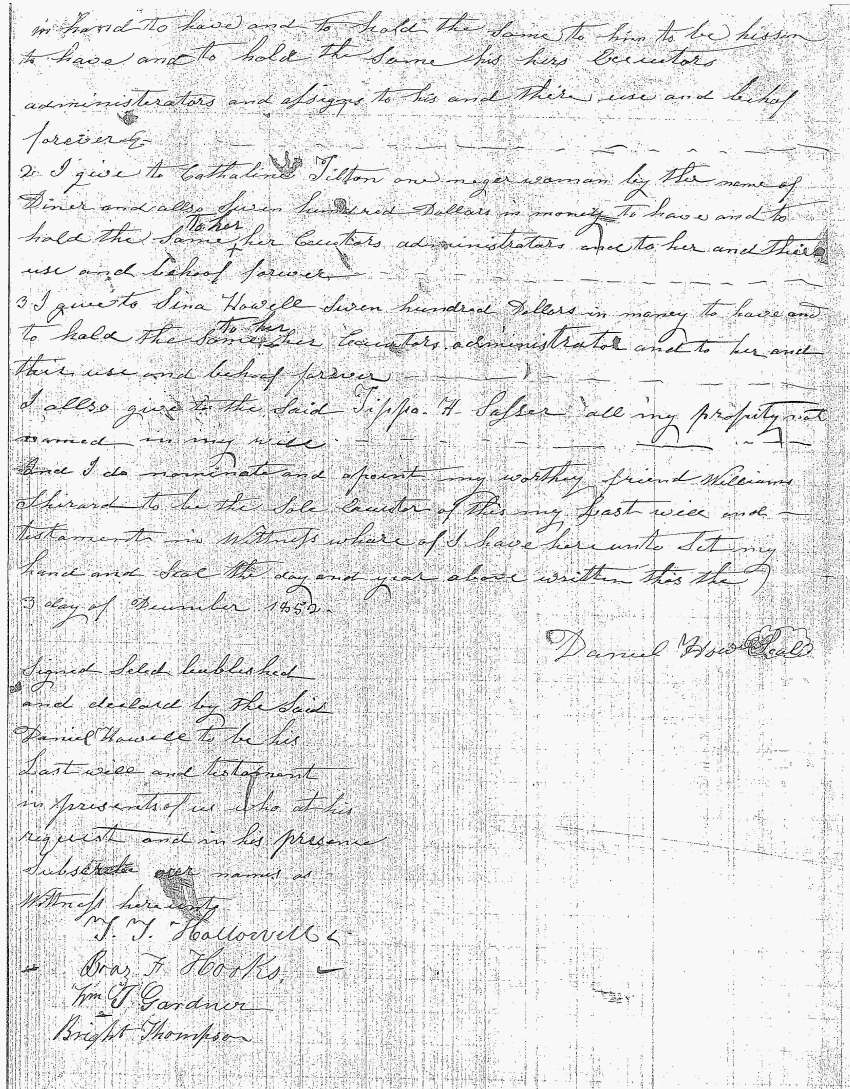 in hand to have and to hold the same to him to be hissen
to have and to hold the same his hers Executors
administrators and assigns to his and thire use and behof
forever &
2 I give to Cathaline Tilton one neger woman by the name of
Diner and allso Seven hundred Dollars in money to have and to
to her
hold the same her Executors administrators and to her and thire
use and behoof forever
3 I give to Sina Howell Seven hundred Dollars in money to have and
to her
to hold the same her Executors administrator and to her and
thire use and behoof forever
I allso give to the Said Tippa. H. Sasser all my propity not
named in my will
And I do nominate and apoint my worthy friend Williams
Shirard to be the Sole Executor of this my Last will and
testament in Wittness whare of I have here unto Set my
hand and Seal the day and year above written this the
3 day of December 1852
Daniel How Seal
Signed Seled bublished
and declard by the Said
Daniel Howell to be his
Last will and testament
in presents of us who at his
request and in his presence
Subs over names as
Wittness here unto
T. T. Hollowell
F. Hooks
Wm T Gardner
Bright Thompson